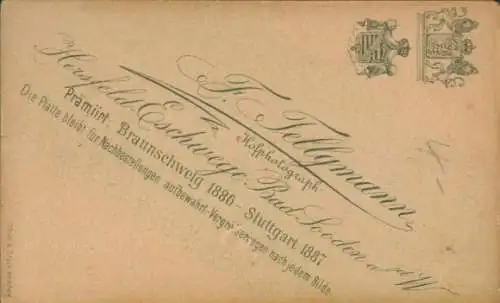 F. Tellgmann
Hofphotograph
Hersfeld-Eschwege-Bad Sooden a. Werra
Prämiirt Braunschweig 1886 - Stuttgart 1887
Die Platte bleibt für Nachbestellungen aufbewahrt. Vergrösserungen nach jedem Bilde.